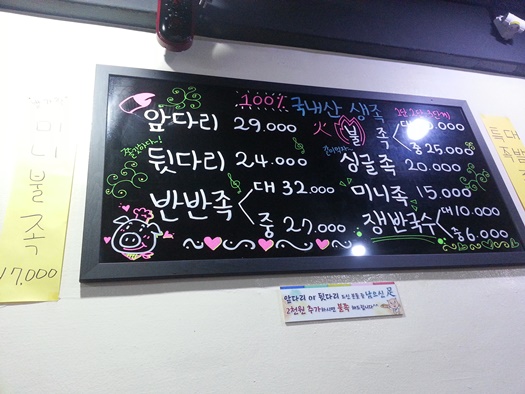 100% 국내산 생족
앞다리 29.000
쫄깃하다!
뒷다리 24.000
반반족 대 32.000
중 27.000
火 불 족
중 25.000
싱글족 20.000
미니족 15.000
쟁반국수 대 10.000
중 6.000
미니불족
17.000
특대
족발
앞다리 or 뒷다리 드신 분들 중 남으신 足
2천원 추가하시면 불족 해드립니다